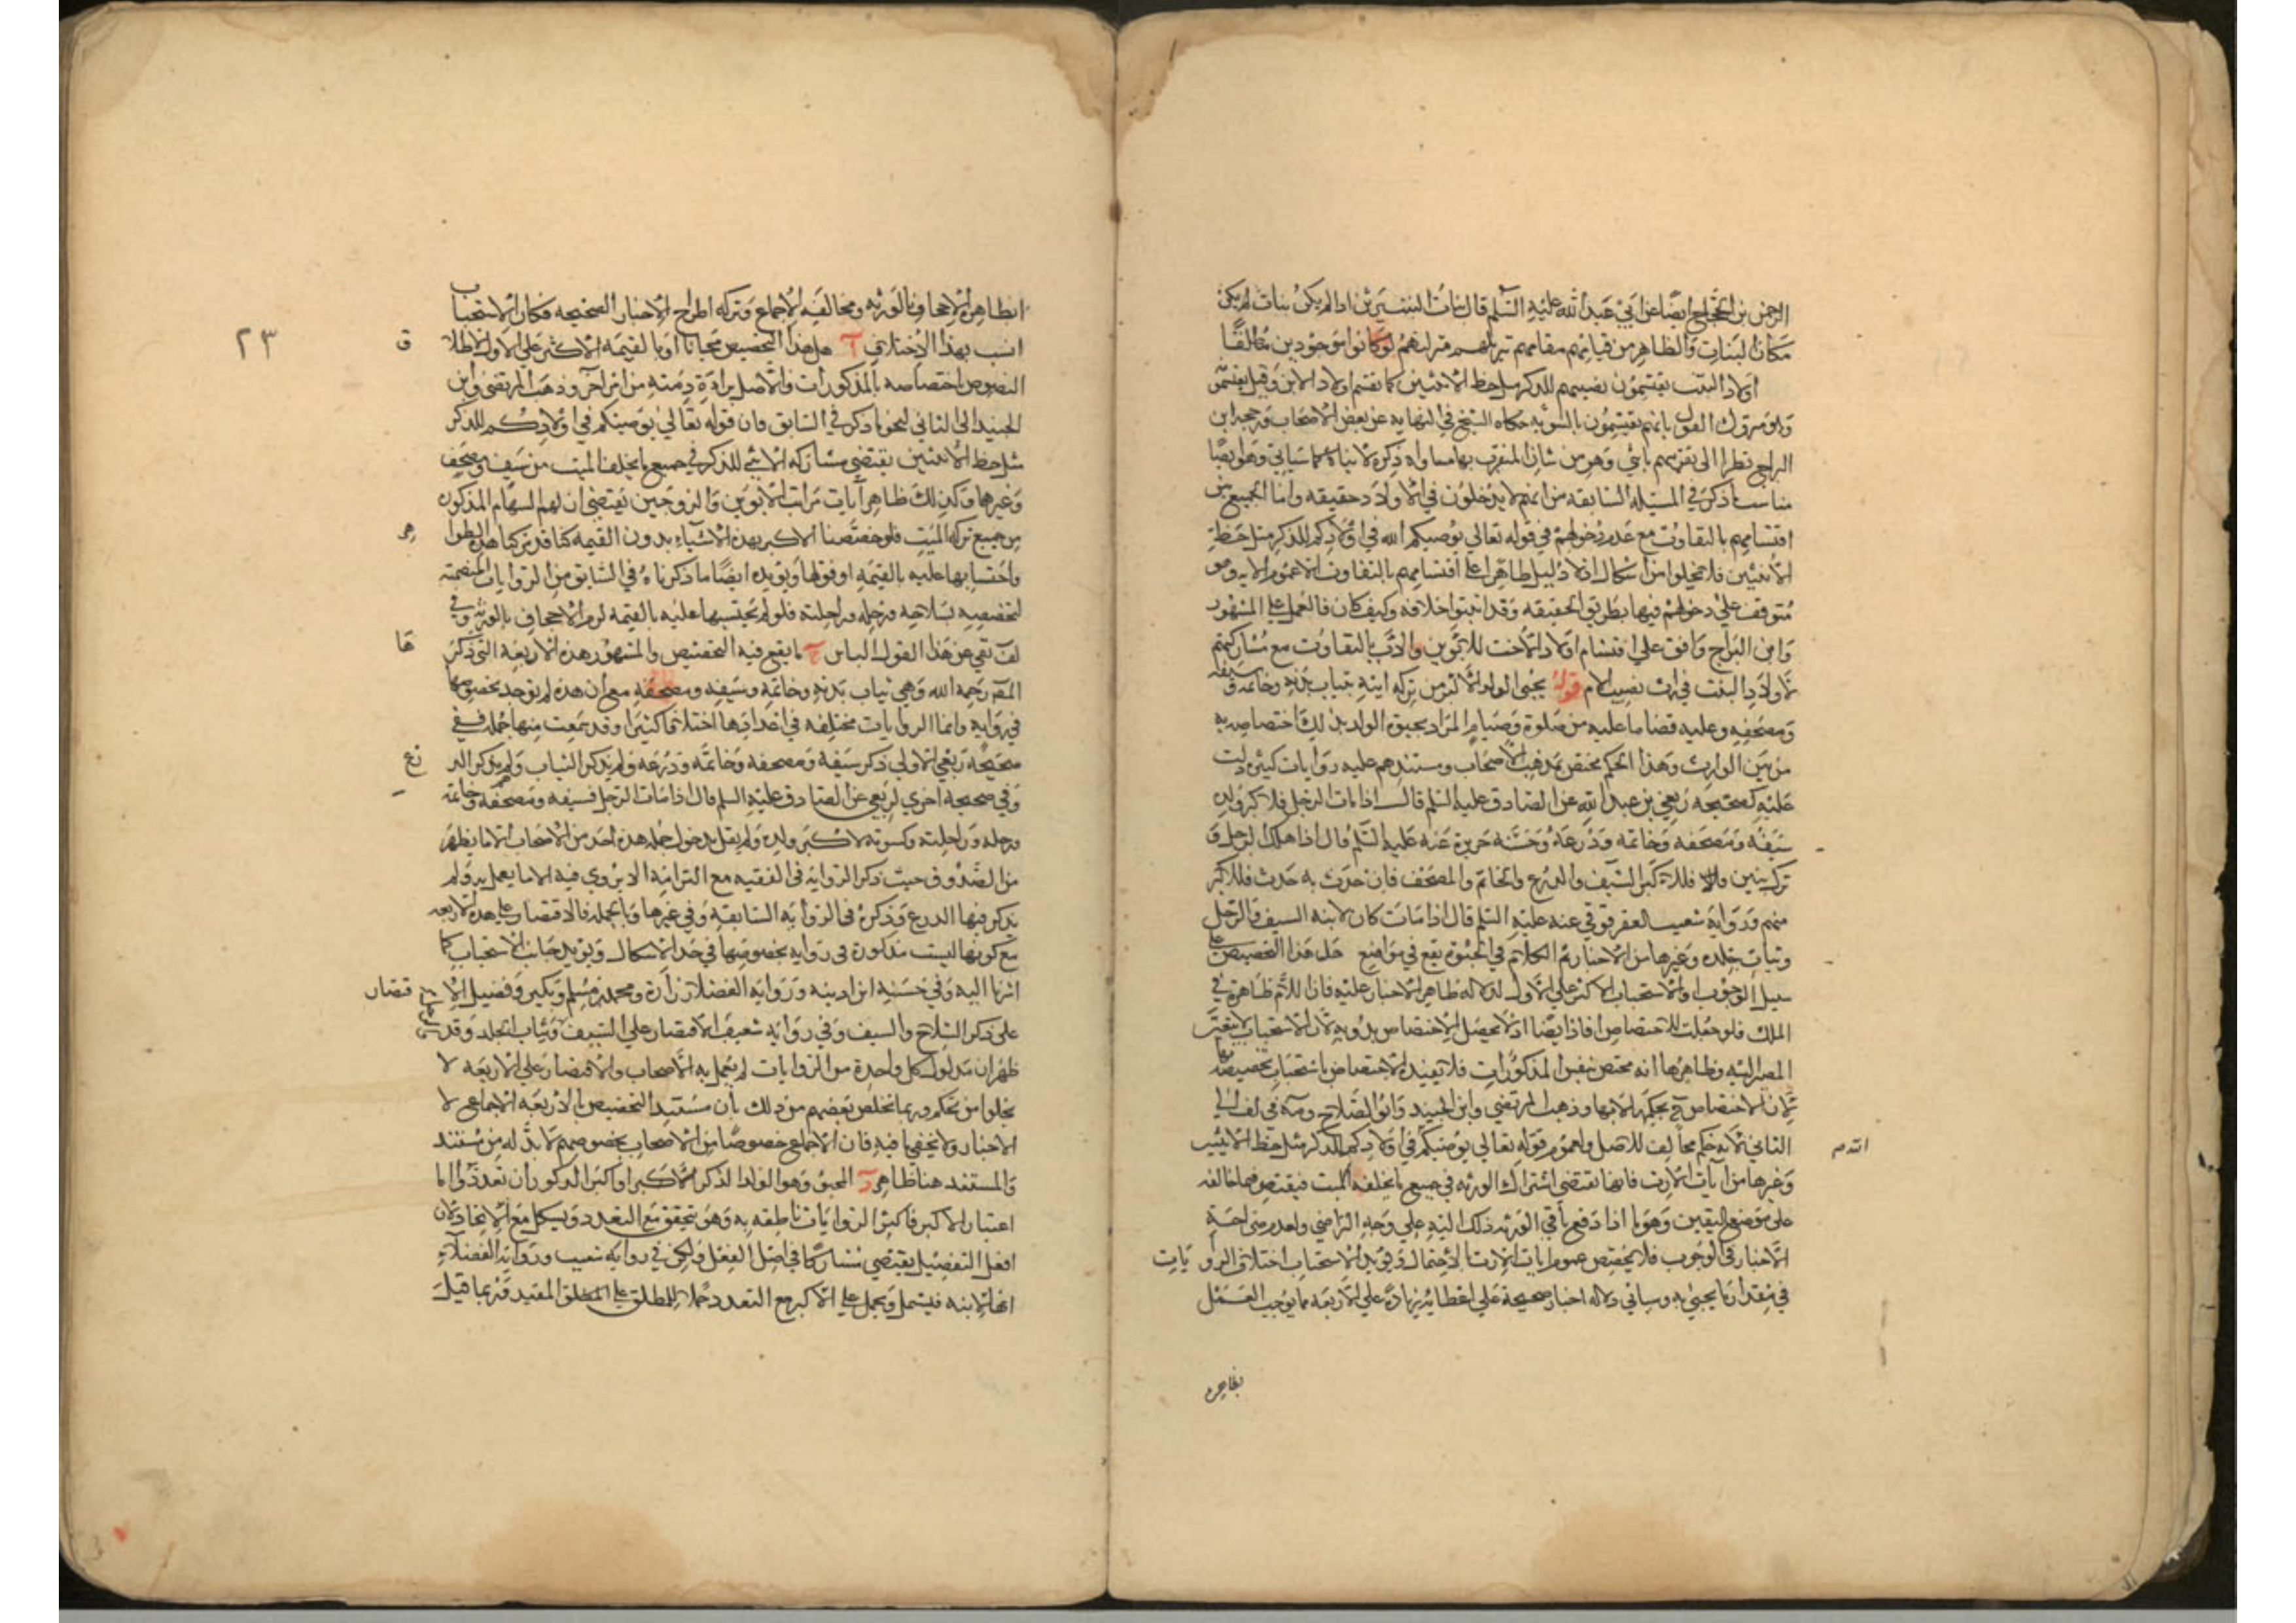 الرحمن بن الحجاج ايضا عن ابي عبد الله عليه السلم قال بنات البنت يرثن اذا لم يكن بنات لم يكن
مكان البنات والظاهر من قيامهم مقامهم تنزيلهم منزلتهم لو كانوا موجودين مطلقا
اولاد البنت يقتسمون نصيبهم للذكر مثل حظ الانثيين كما يقتسم اولاد الابن وقيل يقتسمون
وهو متروك القول بانهم يقتسمون بالسوية حكاه الشيخ في النهاية عن بعض الاصحاب ورجحه ابن
البراج نظرا الى تقربهم بانثى وهو من شان المتقرب بها مساواة ذكره لانثاه كما سياتي وهو ايضا
مناسب ما ذكر في المسئلة السابقة من انهم لا يدخلون في الاولاد حقيقة واما الجميع بين
اقتسامهم بالتفاوت مع عدم دخولهم في قوله تعالى يوصيكم الله في اولادكم للذكر مثل حظ
الانثيين فلا يخلوا من اشكال اذ لا دليل ظاهرا على اقتسامهم بالتفاوت الا عموم الاية وهو
متوقف على دخولهم فيها بطريق الحقيقة وقد اثبتوا خلافه وكيف كان فالعمل على المشهور
وابن البراج وافق على اقتسام اولاد الاخت للابوين والاب بالتفاوت مع مشاركتهم
لاولاد البنت في ارث نصيب الام قوله يحبى الولد الاكبر من تركة ابيه بثياب بدنه وخاتمه وسيفه
ومصحفه وعليه قضا ما عليه من صلوة وصيام المراد بحبوة الولد بذلك اختصاصه به
من بين الوارث وهذا الحكم مختص بمذهب الاصحاب ومستندهم عليه روايات كثيرة دلت
عليه كصحيحة ربعي بن عبد الله عن الصادق عليه السلم قال اذا مات الرجل فلاكبر ولده
سيفه ومصحفه وخاتمه ودرعه وحسنة حريز عنه عليه السلم قال اذا هلك الرجل و
ترك بنين فللاكبر السيف والدرع والخاتم والمصحف فان حدث به حدث فللاكبر
منهم ورواية شعيب العقرقوفي عنه عليه السلم قال اذا مات كان لابنه السيف والرحل
وثياب جلده وغيرها من الاخبار ثم الكلام في الحبوة يقع في مواضع هل هذا التخصيص على
سبيل الوجوب او الاستحباب الاكثر على الاول لدلالة ظاهر الاخبار عليه فان اللام ظاهرة في
الملك فلو جعلت للاختصاص افاد ايضا اذ لا يحصل الاختصاص بدونه لان الاستحباب لا يتعين
المصير اليه وظاهرها انه مختص بنفس المذكورات فلا يفيده الاختصاص باستحباب تخصيصه بها
لان الاختصاص ح بحكمها لا بها وذهب المرتضى وابن الجنيد وابو الصلاح ومه في لف الى
الثاني لانه حكم مخالف للاصل ولعموم قوله تعالى يوصيكم في اولادكم للذكر مثل حظ الانثيين
الله م
وغيرها من ايات الارث فانها تقتضي اشتراك الورثة في جميع ما يخلفه الميت فيقتصر فيما خالفه
على موضع اليقين وهو ما اذا دفع باقي الورثة ذلك اليه على وجه التراضي ولعدم صراحة
الاخبار في الوجوب فلا يخصص عموم ايات الارث بالاحتمال ويؤيد الاستحباب اختلاف الروايات
في مقدار ما يحبى به وسياتي دلالة اخبار صحيحة على اعطائه زيادة على الاربعة مما يوجب العمل
بظاهره
٢٣
بظاهره الاجحاف بالورثة ومخالفة الاجماع وتركه اطراح الاخبار الصحيحة فكان الاستحباب
انسب بهذا الاختلاف آ هل هذا التخصيص مجانا او بالقيمة الاكثر على الاول لاطلاق
النصوص اختصاصه بالمذكورات والاصل براءة ذمته من امر اخر وذهب المرتضى وابن
الجنيد الى الثاني لنحو ما ذكر في السابق فان قوله تعالى يوصيكم في اولادكم للذكر
مثل حظ الانثيين يقتضي مشاركة الانثى للذكر في جميع ما يخلفه الميت من سيف ومصحف
وغيرهما وكذلك ظاهر ايات ميراث الابوين والزوجين يقتضي ان لهم السهام المذكورة
من جميع تركة الميت فلو خصصنا الاكبر بهذه الاشياء بدون القيمة كنا قد تركنا هذه الظواهر
واحتسابها عليه بالقيمة اوفق لها ويؤيده ايضا ما ذكرناه في السابق من الروايات المتضمنة
لتخصيصه بسلاحه ورحله وراحلته فلو لم يحتسبها عليه بالقيمة لزم الاجحاف بالورثة وفي
لف نقي عن هذا القول الباس ما يقع فيه التخصيص والمشهور هذه الاربعة التي ذكرها
المصنف رحمه الله وهي ثياب بدنه وخاتمه وسيفه ومصحفه مع ان هذه لم يوجد بخصوصها
في رواية وانما الروايات مختلفة في اعدادها اختلافا كثيرا وقد سمعت منها جملة ففي
صحيحة ربعي الاولى ذكر سيفه ومصحفه وخاتمه ودرعه ولم يذكر الثياب ولم يذكر الدرع
وفي صحيحة اخرى لربعي عن الصادق عليه السلم قال اذا مات الرجل فسيفه ومصحفه وخاتمه
ورحله وراحلته وكسوته لاكبر ولده ولم يقل بدخول جملة هذه احد من الاصحاب الا ما يظهر
من الصدوق حيث ذكر الرواية في الفقيه مع التزامه الا يروي فيه الا ما يعمل به ولم
يذكر فيها الدرع وذكره في الرواية السابقة وفي غيرها وبالجملة فالاقتصار على هذه الاربعة
مع كونها ليست مذكورة في رواية بخصوصها في حد الاشكال ويؤيد جانب الاستحباب كما
اشرنا اليه وفي حسنة ابن اذينة ورواية الفضلاء زرارة ومحمد بن مسلم وبكير وفضيل الاقتصار
على ذكر السلاح والسيف وفي رواية شعيب الاقتصار على السيف وثياب الجلد وقد
ظهر ان مدلول كل واحدة من الروايات لم يعمل به الاصحاب والاقتصار على الاربعة لا
يخلوا من تحكم وربما تخلص بعضهم من ذلك بان مستند التخصيص بالاربعة الاجماع لا
الاخبار ولا يخفى ما فيه فان الاجماع خصوصا من الاصحاب بخصوصهم لا بد له من مستند
والمستند هنا ظاهر المحبو وهو الولد الذكر الاكبر او اكبر الذكور ان تعددوا اما
اعتبار الاكبر فاكثر الروايات ناطقة به وهو متحقق مع التعدد ويشكل مع الاتحاد لان
افعل التفضيل يقتضي مشاركا في اصل الفعل ولكن في رواية شعيب ورواية الفضلاء
انها لابنه فيشمل ويحمل على الاكبر مع التعدد حملا للمطلق على المقيد وربما قيل